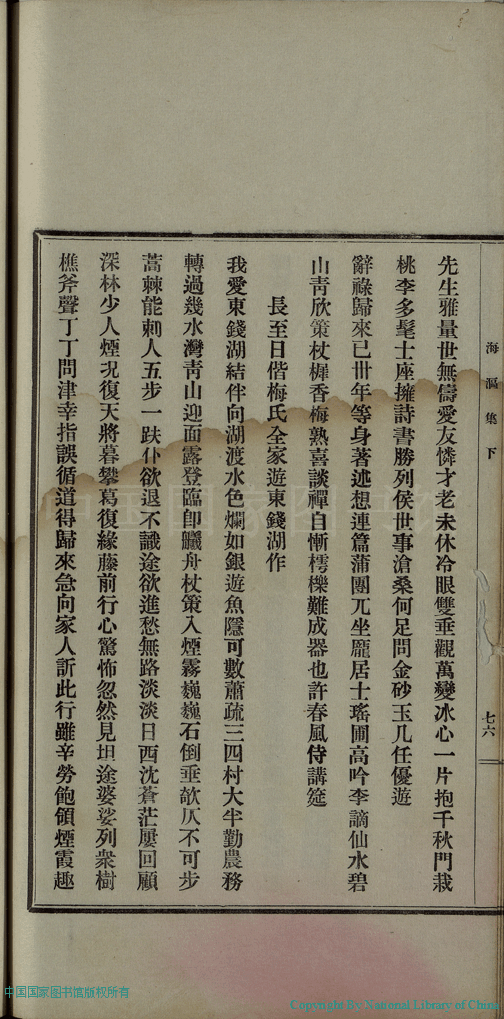 海漚集下
七六
先生雅量世無儔愛友憐才老未休冷眼雙垂觀萬變冰心一片抱千秋門栽
桃李多髦士座擁詩書勝列侯世事滄桑何足問金砂玉几任優遊
辭祿歸來已卅年等身著述想連篇蒲團兀坐龐居士瑤圃高吟李謫仙水碧
山靑欣策杖樨香梅熟喜談禪自慚樗櫟難成器也許春風侍講筵
長至日偕梅氏全家遊東錢湖作
我愛東錢湖結伴向湖渡水色爛如銀遊魚隱可數蕭疏三四村大半勤農務
轉過幾水灣靑山迎面露登臨卽艤舟杖策入煙霧巍巍石倒垂欹仄不可步
蒿棘能刺人五步一跌仆欲退不識途欲進愁無路淡淡日西沈蒼茫屢回顧
深林少人煙況復天將暮攀葛復緣藤前行心驚怖忽然見坦途婆娑列衆樹
樵斧聲丁丁問津幸指誤循道得歸來急向家人訴此行雖辛勞飽領煙霞趣
中国国家图书馆版权所有
Copyright By National Library of China